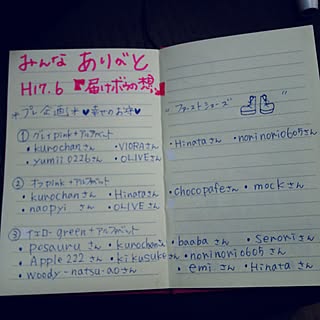 みんな ありがと
H17.6 届けボクの想
*プレ企画* ♥幸せのお守♥
① グレイpink+アルファベット
・kurochanさん ・VIORAさん
・yumii0226さん ・OLIVEさん
② オフpink+アルファベット
・kurochanさん ・Hinataさん
・naopyiさん ・OLIVEさん
③ イエローgreen+アルファベット
・posauruさん ・kurochanさん
・Apple222さん ・kikusukeさん
・woody-natsu-aoさん
"ファーストシューズ"
・Hinataさん ・norinori0605さん
・chocopafeさん ・mockさん
・baabaさん ・Senoriさん
・norinori0605さん
・emiさん ・Hinataさん